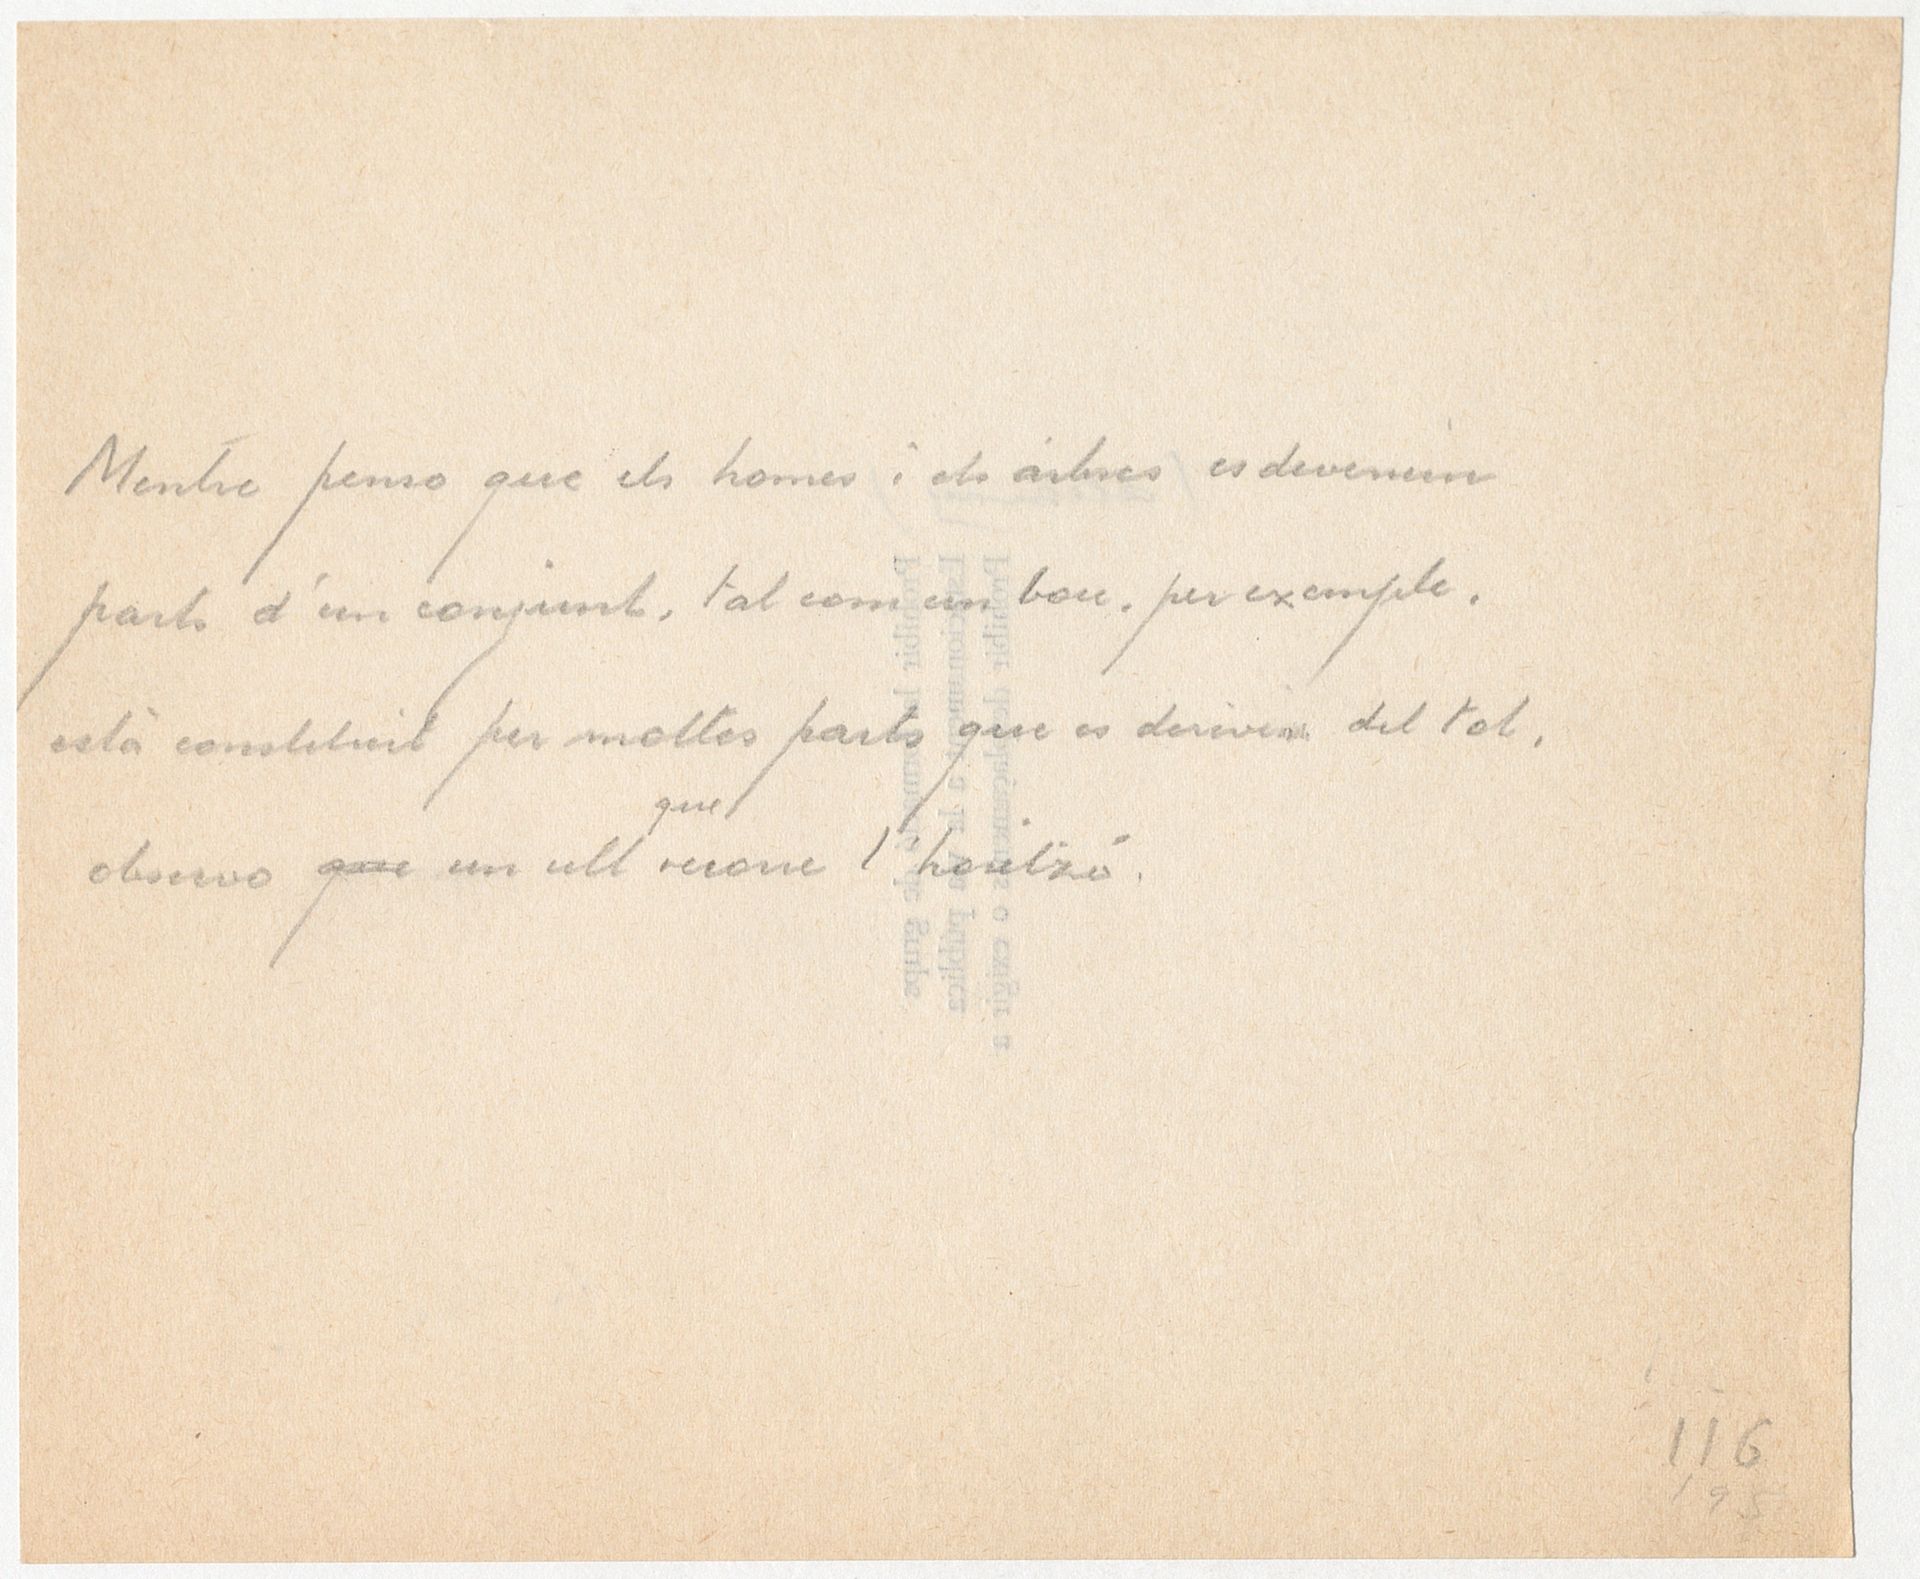 Mentre penso que els homes i els arbres esdevenen
parts d'un conjunt, tal com un bou, per exemple,
està constituït per moltes parts que es deriven del tot,
que
observo que un ull recorre l'horitzó.
116
195